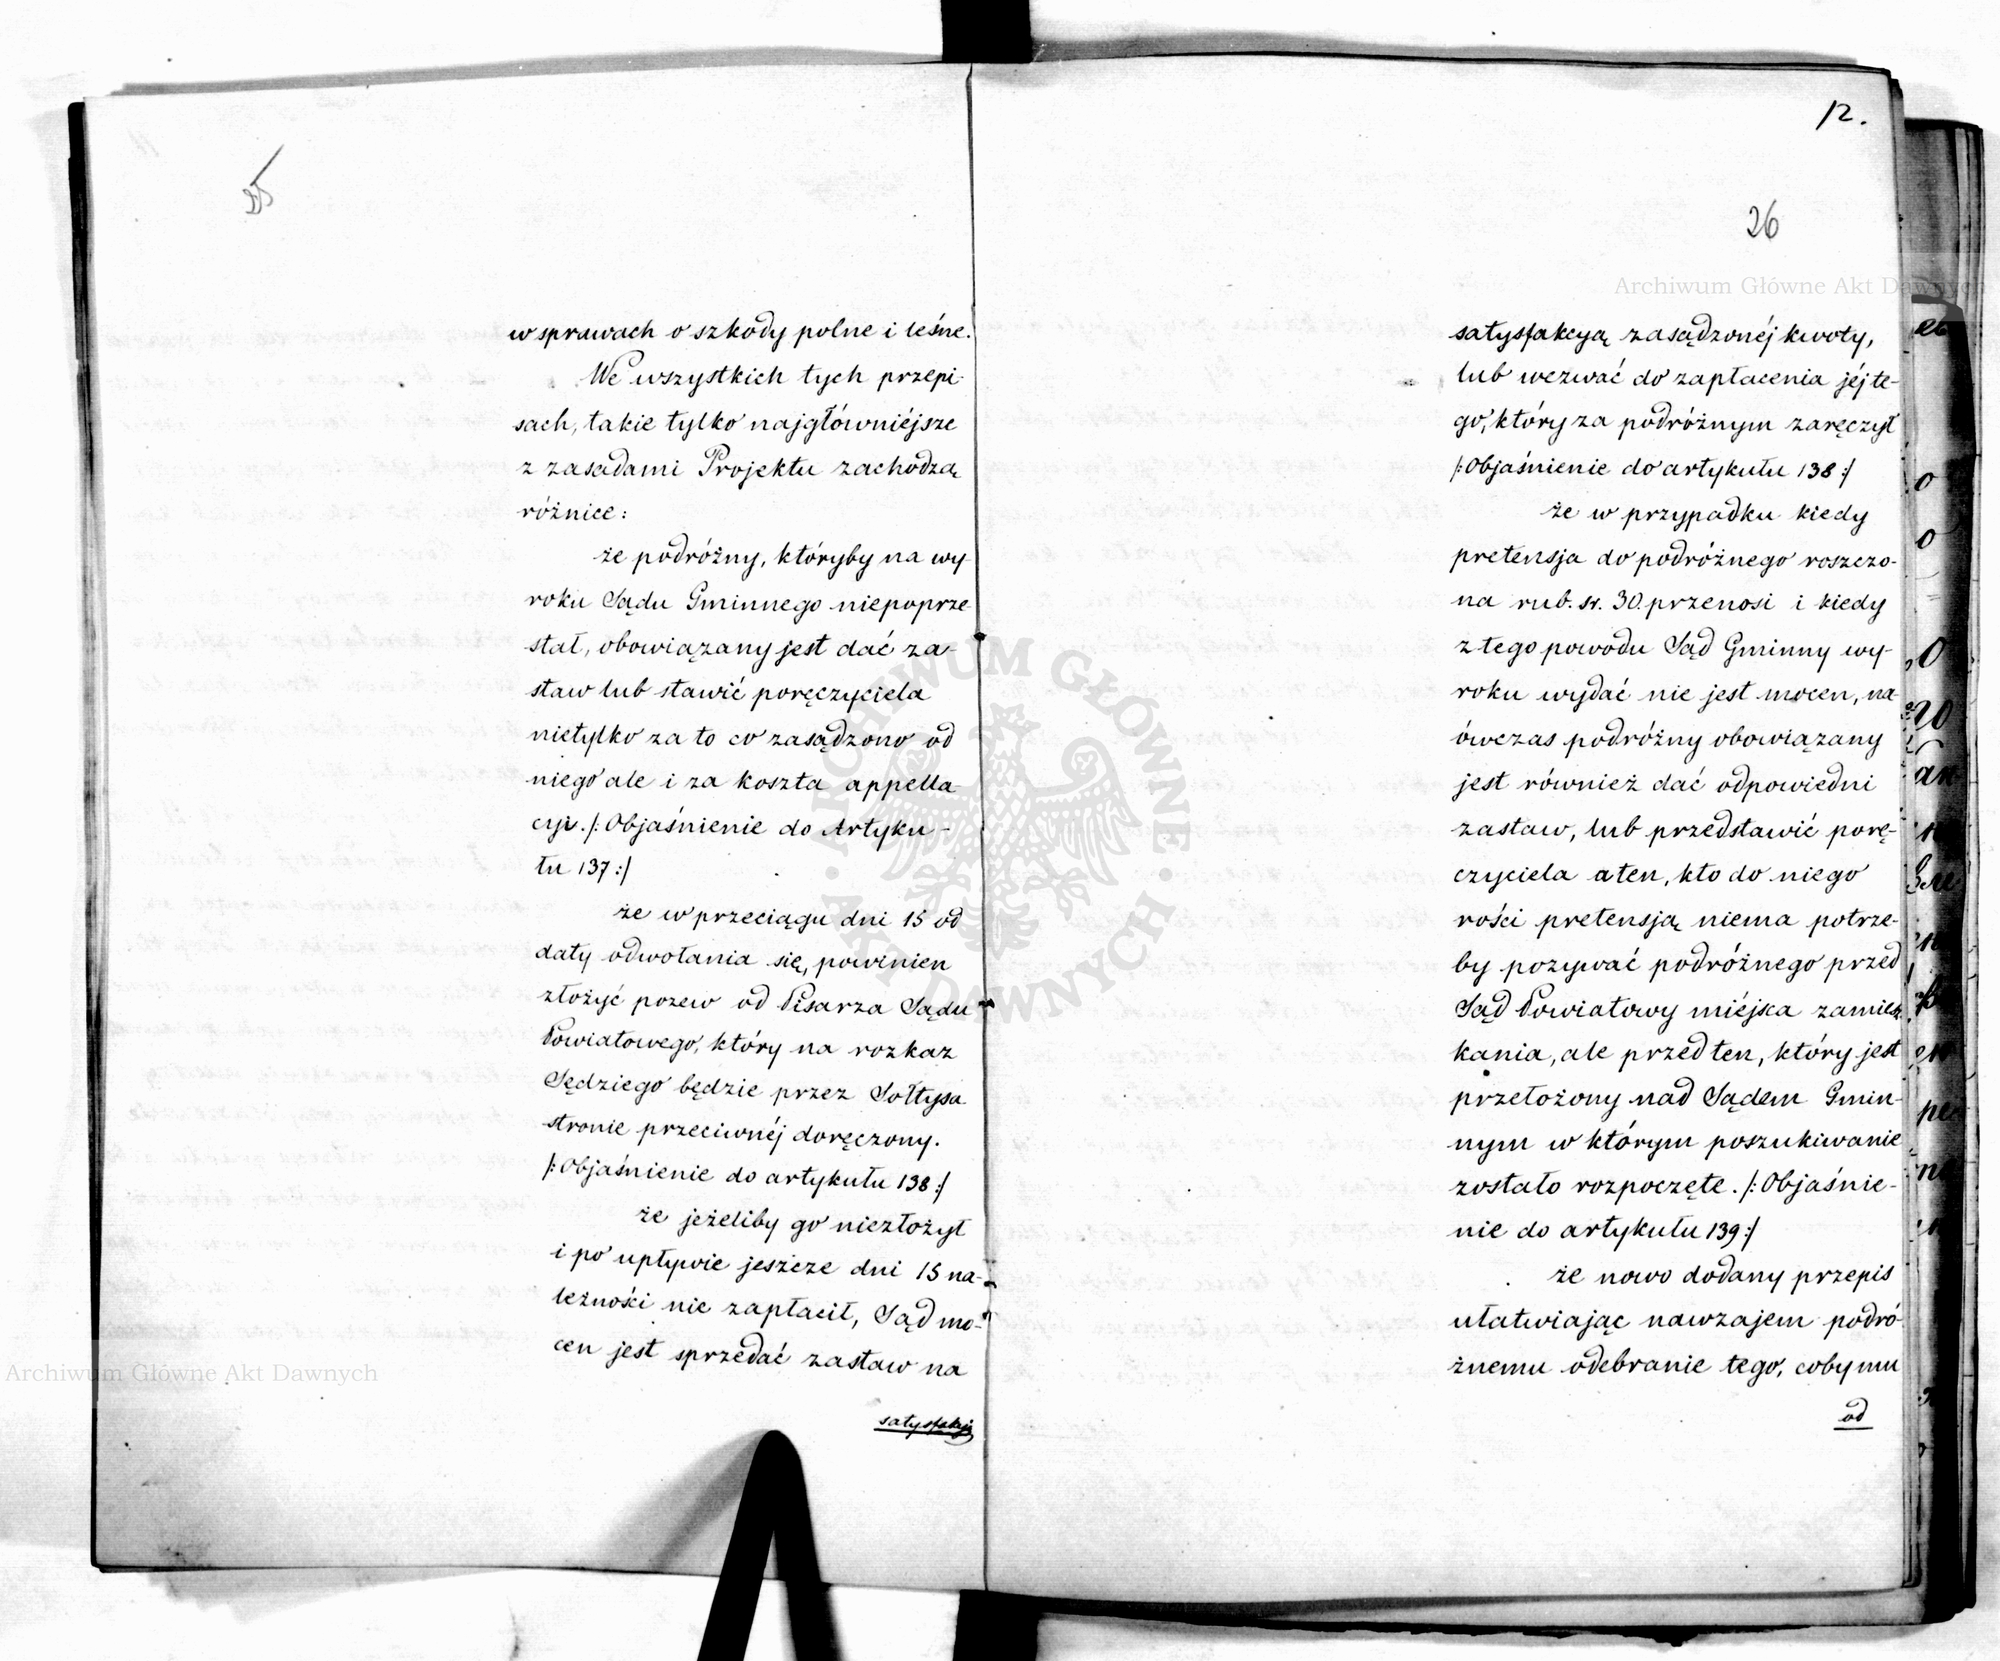 25
w sprawach o szkody polne i leśne.
We wszystkich tych przepi-
sach, takie tylko najgłówniéjsze
z zasadami Projektu zachodzą
różnice:
że podróżny, któryby na wy-
roku Sądu Gminnego niepoprze-
stał, obowiązany jest dać za-
staw lub stawić poręczyciela
nietylko za to co zasądzono od
niego ale i za koszta appella-
cyi. /: Objaśnienie do Artyku-
łu 137 :/
że w przeciągu dni 15 od
daty odwołania się, powinien
złożyć pozew od Pisarza Sądu
Powiatowego, który na rozkaz
Sędziego będzie przez Sołtysa
stronie przeciwnéj doręczony.
/: Objaśnienie do artykułu 138 :/
że jeżeliby go niezłożył
i po upływie jeszcze dni 15 na-
leżności nie zapłacił, Sąd mo-
cen jest sprzedać zastaw na
satysfakcją
12.
26
satysfakcyą zasądzonéj kwoty,
lub wezwać do zapłacenia jéj te-
go, który za podróżnym zaręczył
/: Objaśnienie do artykułu 138 :/
że w przypadku kiedy
pretensja do podróżnego roszczo-
na rub. sr. 30. przenosi i kiedy
z tego powodu Sąd Gminny wy-
roku wydać nie jest mocen, na-
ówczas podróżny obowiązany
jest również dać odpowiedni
zastaw, lub przedstawić porę-
czyciela a ten, kto do niego
rości pretensją niema potrze-
by pozywać podróżnego przed
Sąd Powiatowy miéjsca zamiesz-
kania, ale przed ten, który jest
przełożony nad Sądem Gmin-
nym w którym poszukiwanie
zostało rozpoczęte. /: Objaśnie-
nie do artykułu 139 :/
że nowo dodany przepis
ułatwiając nawzajem podró-
żnemu odebranie tego, coby mu
od
Archiwum Główne Akt Dawnych
Archiwum Główne Akt Dawnych
ARCHIWUM GŁÓWNE AKT DAWNYCH